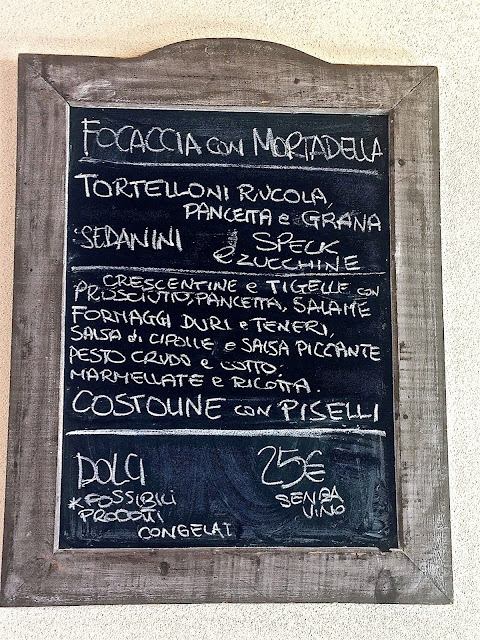 FOCACCIA CON MORTADELLA
TORTELLONI RUCOLA,
PANCETTA e GRANA
SEDANINI SPECK
e ZUCCHINE
CRESCENTINE e TIGELLE con
PROSCIUTTO, PANCETTA, SALAME
FORMAGGI DURI e TENERI,
SALSA di CIPOLLE e SALSA PICCANTE
PESTO CRUDO e COTTO.
MARMELLATE e RICOTTA.
COSTOLINE con PISELLI
DOLCI 25€
SENZA
VINO
*POSSIBILI
PRODOTTI
CONGELATI